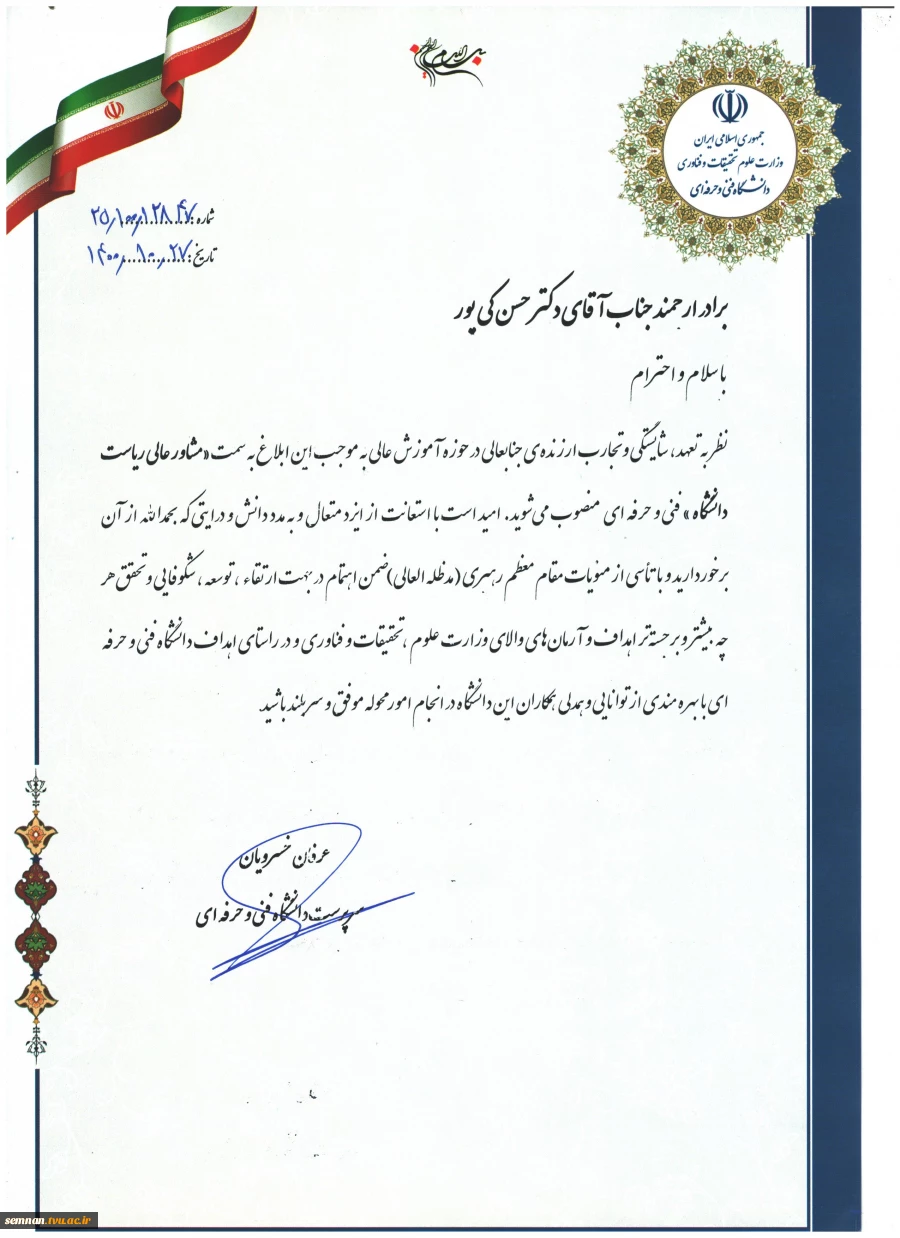 بسم الله الرحمن الرحیم
جمهوری اسلامی ایران
وزارت علوم تحقیقات و فناوری
دانشگاه فنی و حرفه ای
شماره:
تاریخ:
برادر ارجمند جناب آقای دکتر حسن کی پور
با سلام و احترام
نظر به تعهد، شایستگی و تجارب ارزنده ی جنابعالی در حوزه آموزش عالی به موجب این ابلاغ به سمت «مشاور عالی ریاست
دانشگاه» فنی و حرفه ای منصوب می شوید. امید است با استعانت از ایزد متعال و به مدد دانش و درایتی که بحمدالله از آن
برخوردارید و با تأسی از منویات مقام معظم رهبری (مدظله العالی) ضمن اهتمام در جهت ارتقاء ، توسعه ، شکوفایی و تحقق هر
چه بیشتر و برجسته تر اهداف و آرمان های والای وزارت علوم ، تحقیقات و فناوری و در راستای اهداف دانشگاه فنی و حرفه
ای با بهره مندی از توانایی و همدلی همکاران این دانشگاه در انجام امور محوله موفق و سربلند باشید.
عرفان خسرویان
سرپرست دانشگاه فنی و حرفه ای
semnan.tvu.ac.ir